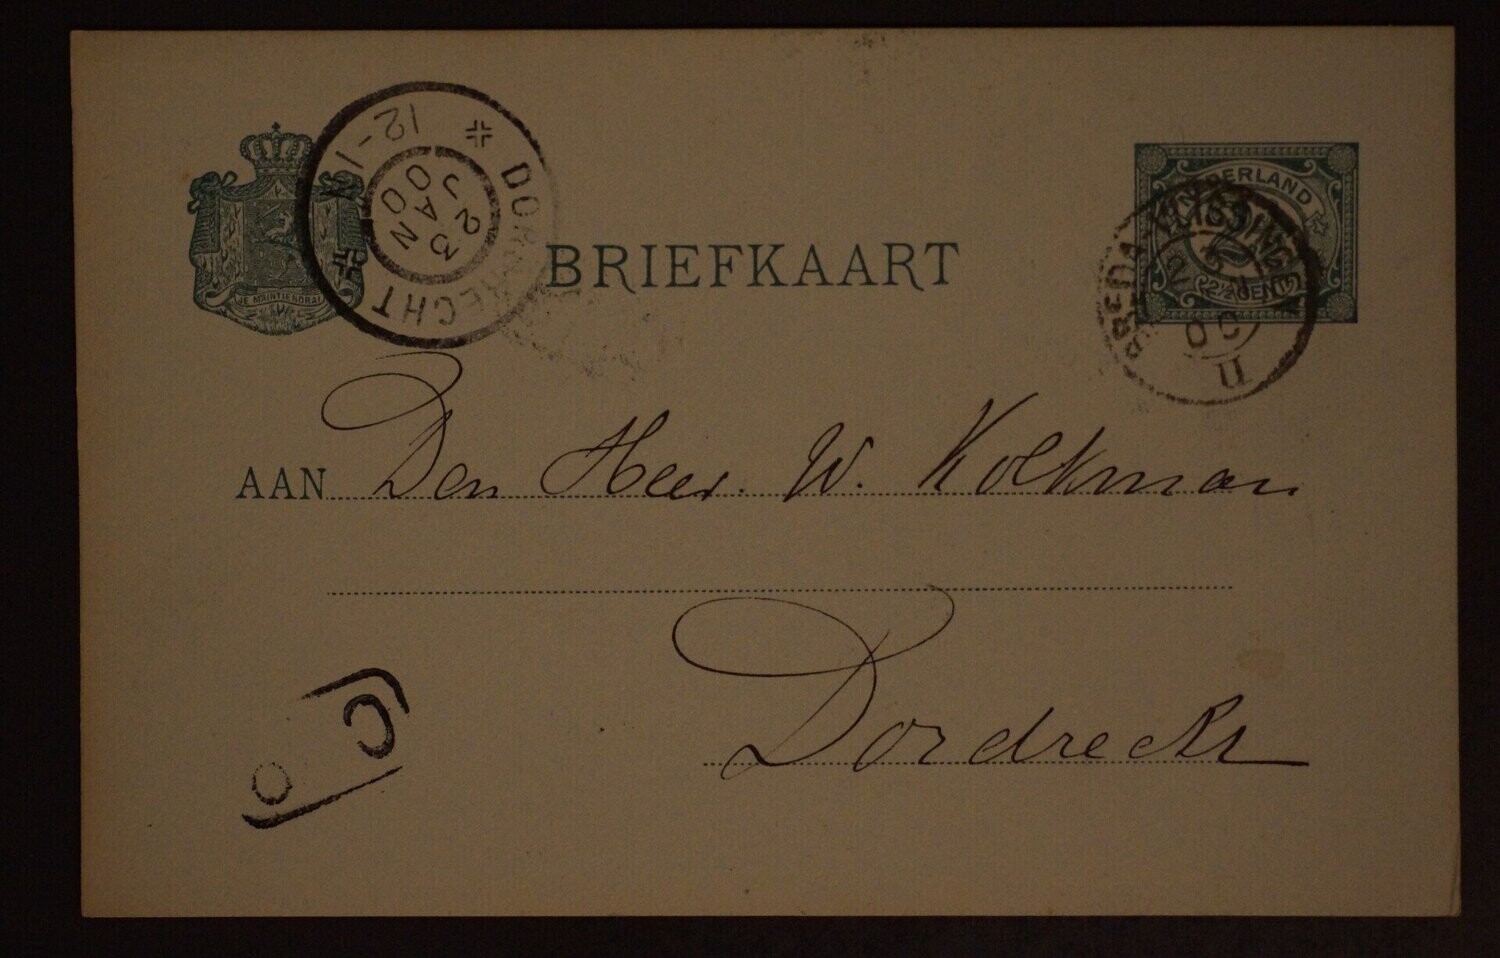 12-1N
DORDRECHT
23
JAN
00
JE MAINTIENDRAI
BRIEFKAART
NEDERLAND
2½ CENT
BREDA VLISSINGEN
00
II
AAN Den Heer W. Kolkman
Dordrecht